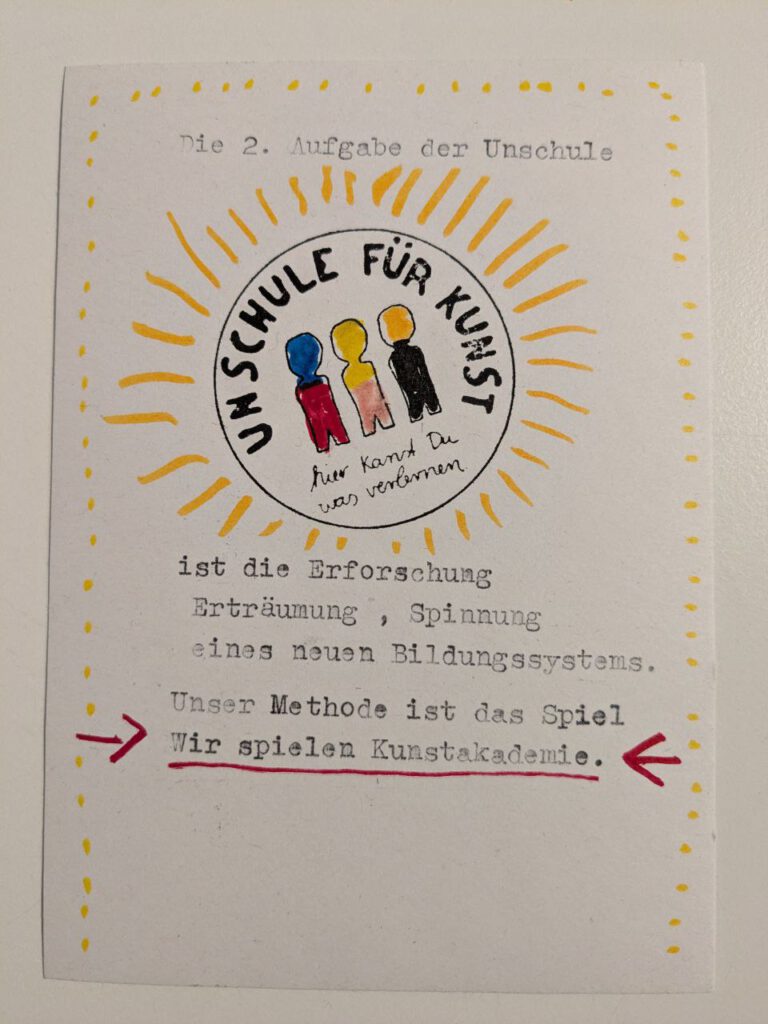 Die 2. Aufgabe der Unschule
UNSCHULE FÜR KUNST
hier kannst Du
was verlernen
ist die Erforschung
Erträumung , Spinnung
eines neuen Bildungssystems.
Unser Methode ist das Spiel
Wir spielen Kunstakademie.